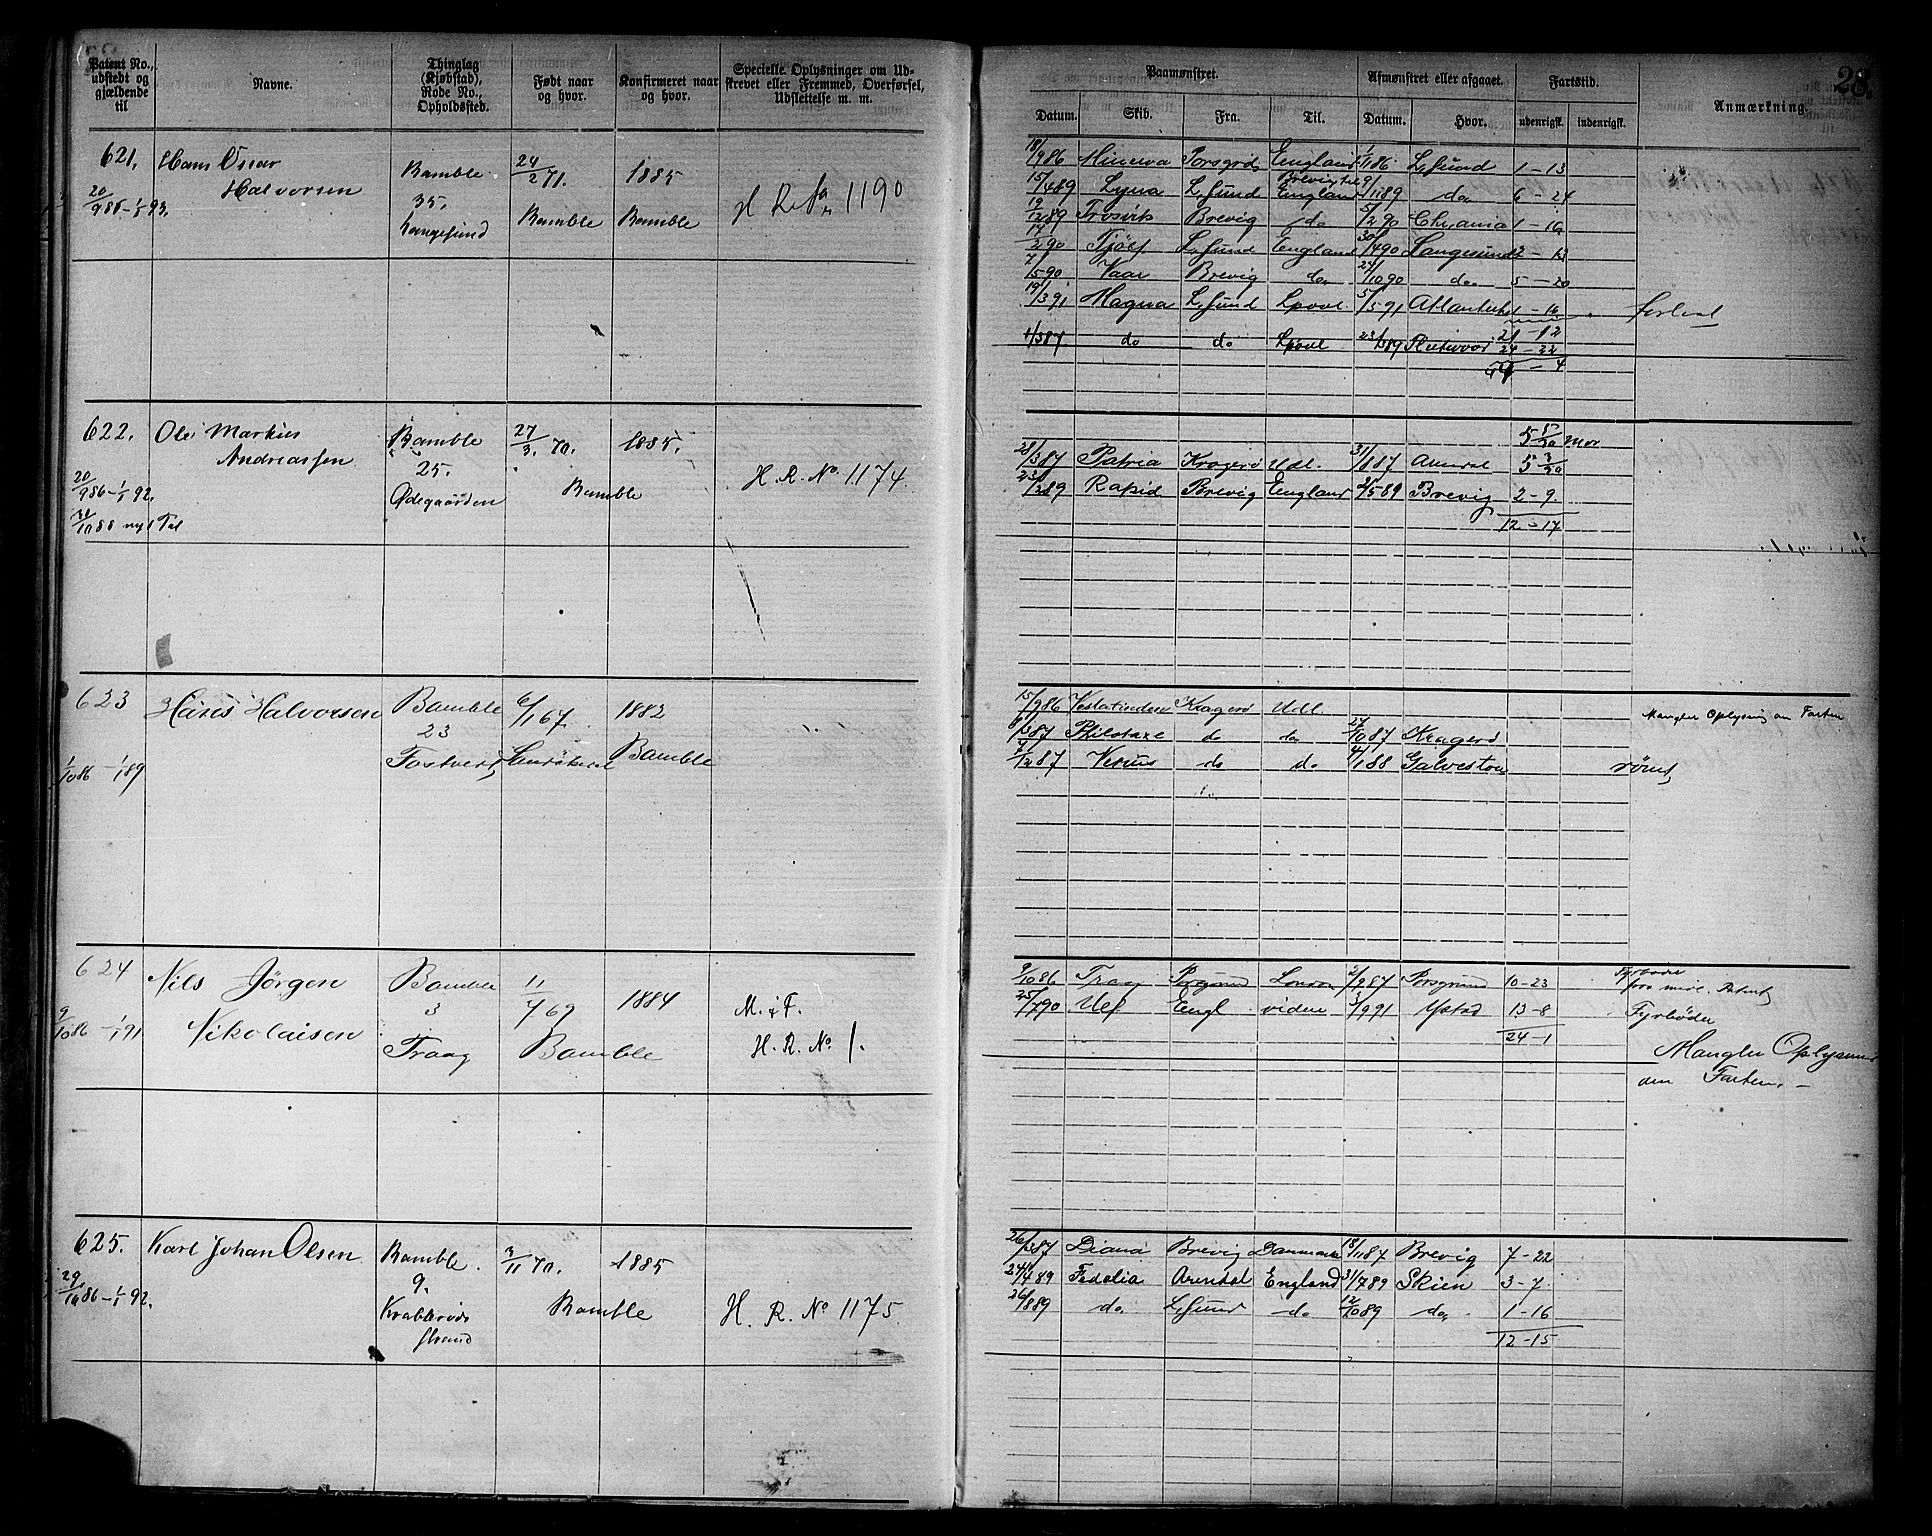 28.
Patent No., udstedt og gjældende til
Navne.
Thinglag (Kjøbstad), Rode No., Opholdssted.
Født naar og hvor.
Konfirmeret naar og hvor.
Specielle Oplysninger om Udskrevet eller Fremmed, Overførsel, Udslettelse m. m.
Paamønstret.
Afmønstret eller afgaaet.
Fartstid.
Anmærkning.
Datum. Skib. Fra. Til. Datum. Hvor. udenrigsk. indenrigsk.
621. Hans Oscar Halvorsen
20/9 86 - 1/1 93.
Bamble 35. Langesund
24/2 71. Bamble
1885 Bamble
H R 1190
18/9 86 Minerva Porsgrd England 1/11 86 L.sund 1-13
15/4 89 Lyna L.sund Brevig England 9/11 89 do 6-24
19/12 89 Frosvik Brevig do 5/2 90 Chr.ania 1-16
17/2 90 Tjølf L.sund England 30/4 90 Langesund 2-13
7/5 90 Vaar Brevig do 27/10 90 do. 5-20
19/3 91 Magna L.sund Lpool. 5/5 91 Atlanterh 1-16 forlist
1/3 87 do do Lpool 23/3 89 Fleetwood 24-22
622. Ole Markus Andreassen
20/9 86 - 1/1 92.
31/10 88 nyt Pat
Bamble 25. Ødegaarden
27/3. 70. Bamble
1885.
H. R. No. 1174.
28/3 87 Patria Kragerø Udl. 31/8 87 Arendal 5 3/30
23/2 89 Rapid Brevig England 2/5 89 Brevig 2-9.
12-17
623 Hans Halvorsen
1/10 86 - 1/1 89
Bamble 23 Tostverg
6/1 67. Sanrökedal
1882 Bamble
15/9 86 Vestalinden Kragerø Udl. Mangler Oplysning om Farten
1/3 87 Philotaxe do do 27/10 87 Kragerø
7/12 87 Venus do do 4/1 88 Galveston rømt
624 Nils Jörgen Nikolaisen
9/10 86 - 1/1 91
Bamble 3 Traag
11/7 69 Bamble
1884
M. i F.
H. R. No 1.
9/10 86 Traag Porsgrund London 2/9 87 Porsgrund 10-23 Fyrbøder
25/7 90 Ulf Engl videre 3/9 91 Ystad 13-8 Fyrbøder
24-1
Mangler Oplysning
den Farten. -
625. Karl Johan Olsen
29/10 86 - 1/1 92.
Bamble. 9. Krabberøds strand
3/11 70. Bamble
1885
H. R. No 1175.
26/3 87 Diana Brevig Danmark 18/11 87 Brevig 7-22
24/4 89 Fedelia Arendal England 31/7 89 Skien 3-7
26/8 89 do. L.sund do 12/10 89 do. 1-16
12-15